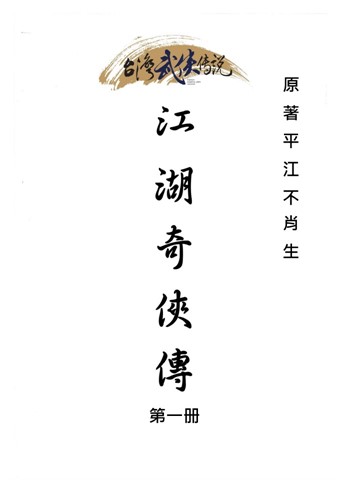 台灣武俠傳説
江湖奇俠傳
第一册
原著平江不肖生